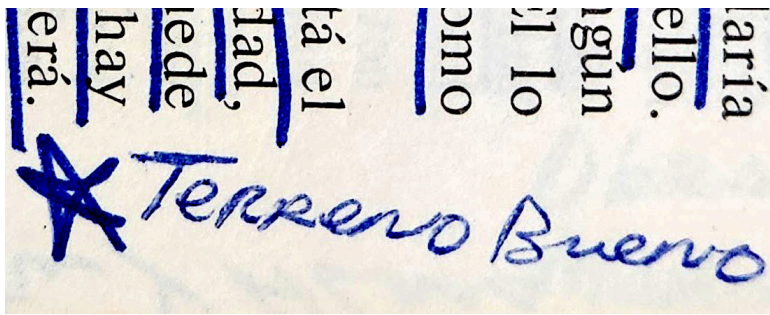 laría
ello.
ngún
Él lo
omo
tá el
dad,
uede
hay
erá.
Terreno Bueno